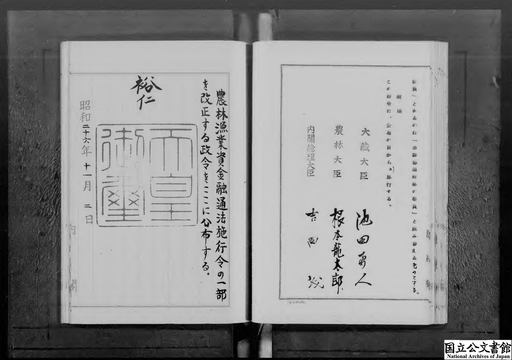 附則
この政令は、公布の日から施行する。
大蔵大臣 池田勇人
農林大臣 根本龍太郎
内閣総理大臣 吉田茂
農林漁業資金融通法施行令の一部
を改正する政令をここに公布する。
裕仁
天皇
御璽
昭和二十六年十一月 日
国立公文書館
National Archives of Japan